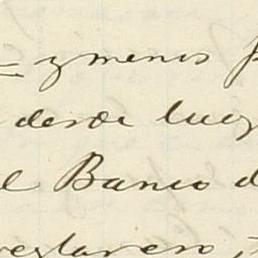 y menos
desde lueg
el Banco d